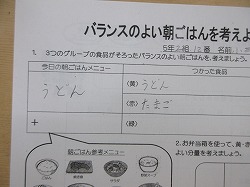 バランスのよい朝ごはんを考えよ
5年2組12番 名前
1. 3つのグループの食品がそろったバランスのよい朝ごはんを考えましょう。
今日の朝ごはんメニュー
つかった食品
うどん
(黄) うどん
(赤) たまご
+
(緑)
朝ごはん参考メニュー
2. お弁当箱を使って、黄・赤
よい分量を考えましょう。